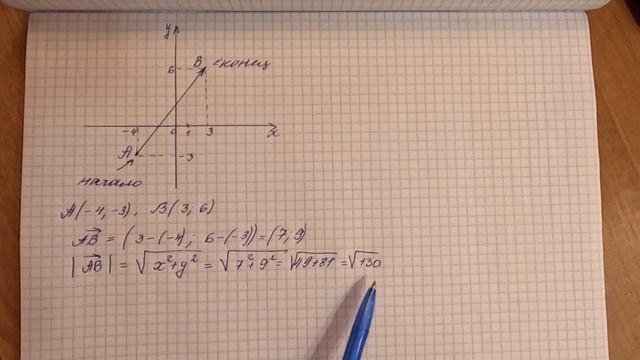 y
B конец
6
-4 0 1 3 x
A
-3
начало
A(-4,-3), B(3, 6)
AB = (3-(-4); 6-(-3))=(7,9)
|AB| = √x²+y² = √7²+9² = √49+81 = √130